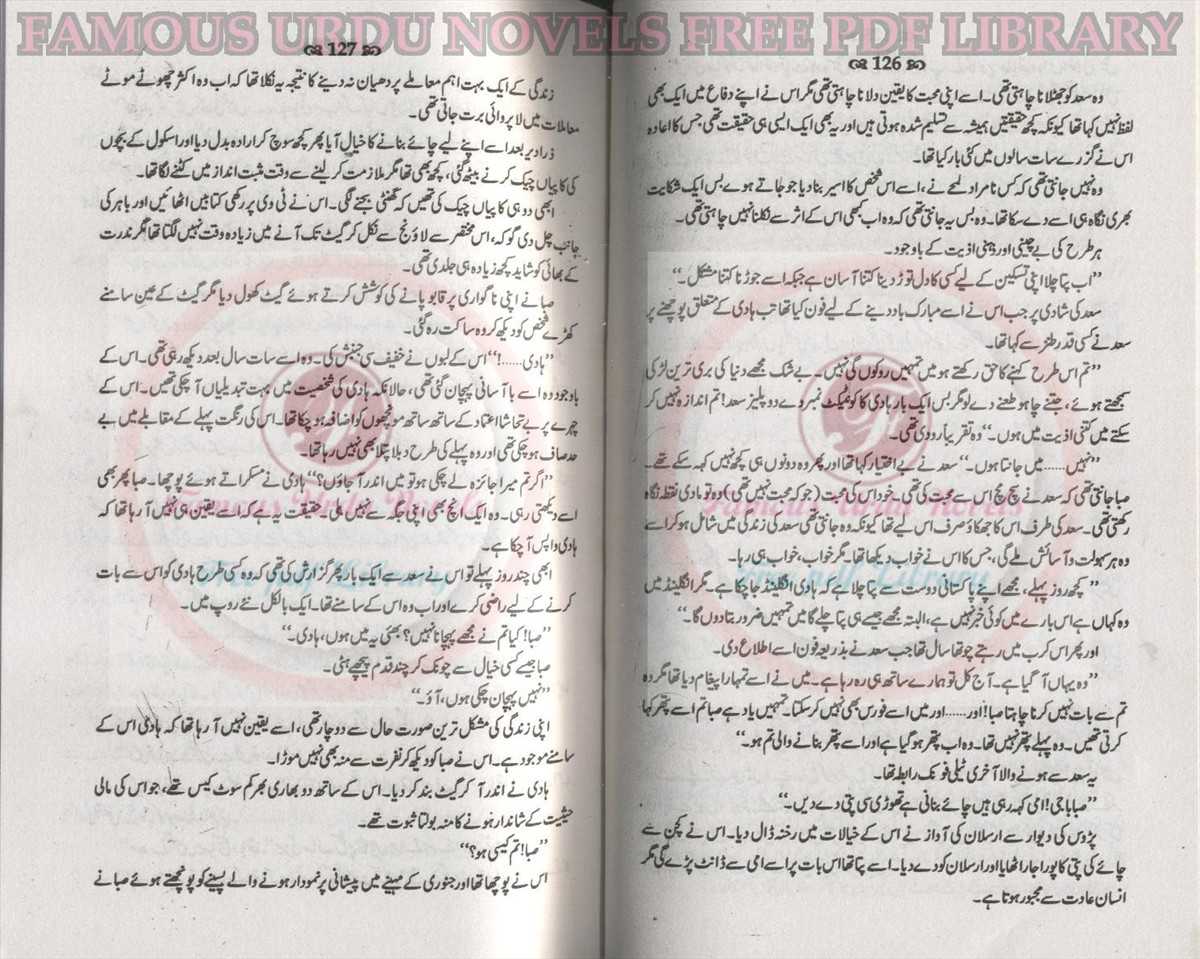 FAMOUS URDU NOVELS FREE PDF LIBRARY
126
وہ سعد کو جھٹلانا چاہتی تھی۔ اسے اپنی محبت کا یقین دلانا چاہتی تھی مگر اس نے اپنے دفاع میں ایک بھی
لفظ نہیں کہا تھا کیونکہ کچھ حقیقتیں ہمیشہ سے تسلیم شدہ ہوتی ہیں اور یہ بھی ایک ایسی ہی حقیقت تھی جس کا اعادہ
اس نے گزرے سات سالوں میں کئی بار کیا تھا۔
وہ نہیں جانتی تھی کہ کس نامراد لمحے نے، اسے اس شخص کا اسیر بنا دیا جو جاتے ہوے بس ایک شکایت
بھری نگاہ ہی اسے دے سکا تھا۔ وہ بس یہ جانتی تھی کہ وہ اب کبھی اس کے اثر سے نکلنا نہیں چاہتی تھی۔
ہر طرح کی بے چینی اور ذہنی اذیت کے باوجود۔
”اب پتا چلا اپنی تسکین کے لیے کسی کا دل توڑ دینا کتنا آسان ہے جبکہ اسے جوڑنا کتنا مشکل۔“
سعد کی شادی پر جب اس نے اسے مبارک باد دینے کے لیے فون کیا تھا تب ہادی کے متعلق پوچھنے پر
سعد نے کسی قدر طنز سے کہا تھا۔
”تم اس طرح کہنے کا حق رکھتے ہو میں تمہیں روکوں گی نہیں۔ بے شک مجھے دنیا کی بری ترین لڑکی
سمجھتے ہوئے، جتنے چاہو طعنے دے لو مگر بس ایک بار ہادی کا کونٹیکٹ نمبر دے دو پلیز سعد! تم اندازہ نہیں کر
سکتے میں کتنی اذیت میں ہوں۔“ وہ تقریباً رو دی تھی۔
”نہیں..... میں جانتا ہوں۔“ سعد نے بے اختیار کہا تھا اور پھر وہ دونوں ہی کچھ نہیں کہہ سکے تھے۔
صبا جانتی تھی کہ سعد نے سچ مچ اس سے محبت کی تھی۔ خود اس کی محبت (جو کہ محبت نہیں تھی) وہ تو مادی نقطہ نگاہ
رکھتی تھی۔ سعد کی طرف اس کا جھکاؤ صرف اس لیے تھا کیونکہ وہ جانتی تھی سعد کی زندگی میں شامل ہو کر اسے
وہ ہر سہولت و آسائش ملے گی، جس کا اس نے خواب دیکھا تھا۔ مگر خواب، خواب ہی رہا۔
”کچھ روز پہلے، مجھے اپنے پاکستانی دوست سے پتا چلا ہے کہ ہادی انگلینڈ جا چکا ہے۔ مگر انگلینڈ میں
وہ کہاں ہے اس بارے میں کوئی خبر نہیں ہے، البتہ مجھے جیسے ہی پتا چلے گا میں تمہیں ضرور بتا دوں گا۔“
اور پھر اس کرب میں رہتے چوتھا سال تھا جب سعد نے بذریعہ فون اسے اطلاع دی۔
”وہ یہاں آ گیا ہے۔ آج کل تو ہمارے ساتھ ہی رہ رہا ہے۔ میں نے اسے تمہارا پیغام دیا تھا مگر وہ
تم سے بات نہیں کرنا چاہتا صبا! اور..... اور میں اسے فورس بھی نہیں کر سکتا۔ تمہیں یاد ہے صبا تم اسے پتھر کہا
کرتی تھیں۔ وہ پہلے پتھر نہیں تھا۔ وہ اب پتھر ہو گیا ہے اور اسے پتھر بنانے والی تم ہو۔“
یہ سعد سے ہونے والا آخری ٹیلی فونک رابطہ تھا۔
”صبا باجی! امی کہہ رہی ہیں چائے بنانی ہے تھوڑی سی پتی دے دیں۔“
پڑوس کی دیوار سے ارسلان کی آواز نے اس کے خیالات میں رخنہ ڈال دیا۔ اس نے کچن سے
چائے کی پتی کا پورا جار اٹھایا اور ارسلان کو دے دیا۔ اسے پتا تھا اس بات پر اسے امی سے ڈانٹ پڑے گی مگر
انسان عادت سے مجبور ہوتا ہے۔
127
زندگی کے ایک بہت اہم معاملے پر دھیان نہ دینے کا نتیجہ یہ نکلا تھا کہ اب وہ اکثر چھوٹے موٹے
معاملات میں لاپروائی برت جاتی تھی۔
ذرا دیر بعد اسے اپنے لیے چائے بنانے کا خیال آیا پھر کچھ سوچ کر ارادہ بدل دیا اور اسکول کے بچوں
کی کاپیاں چیک کرنے بیٹھ گئی، کچھ بھی تھا مگر ملازمت کر لینے سے وقت مثبت انداز میں کٹنے لگا تھا۔
ابھی دو ہی کاپیاں چیک کی تھیں کہ گھنٹی بجنے لگی۔ اس نے ٹی وی پر رکھی کتابیں اٹھائیں اور باہر کی
جانب چل دی گو کہ، اس مختصر سے لاؤنج سے نکل کر گیٹ تک آنے میں زیادہ وقت نہیں لگتا تھا مگر ندرت
کے بھائی کو شاید کچھ زیادہ ہی جلدی تھی۔
صبا نے اپنی ناگواری پر قابو پانے کی کوشش کرتے ہوئے گیٹ کھول دیا مگر گیٹ کے عین سامنے
کھڑے شخص کو دیکھ کر وہ ساکت رہ گئی۔
”ہادی......!“ اس کے لبوں نے خفیف سی جنبش کی۔ وہ اسے سات سال بعد دیکھ رہی تھی۔ اس کے
باوجود وہ اسے با آسانی پہچان گئی تھی، حالانکہ ہادی کی شخصیت میں بہت تبدیلیاں آ چکی تھیں۔ اس کے
چہرے پر بے تحاشا اعتماد کے ساتھ ساتھ مونچھوں کا اضافہ ہو چکا تھا۔ اس کی رنگت پہلے کے مقابلے میں بے
حد صاف ہو چکی تھی اور وہ پہلے کی طرح دبلا پتلا بھی نہیں رہا تھا۔
”اگر تم میرا جائزہ لے چکی ہو تو میں اندر آ جاؤں؟“ ہادی نے مسکراتے ہوئے پوچھا۔ صبا پھر بھی
اسے دیکھتی رہی۔ وہ ایک انچ بھی اپنی جگہ سے نہیں ہلی۔ حقیقت یہ ہے کہ اسے یقین ہی نہیں آ رہا تھا کہ
ہادی واپس آ چکا ہے۔
ابھی چند روز پہلے تو اس نے سعد سے ایک بار پھر گزارش کی تھی کہ وہ کسی طرح ہادی کو اس سے بات
کرنے کے لیے راضی کرے اور اب وہ اس کے سامنے تھا۔ ایک بالکل نئے روپ میں۔
”صبا! کیا تم نے مجھے پہچانا نہیں؟ بھئی یہ میں ہوں، ہادی۔“
صبا جیسے کسی خیال سے چونک کر چند قدم پیچھے ہٹی۔
”نہیں پہچان چکی ہوں، آؤ۔“
اپنی زندگی کی مشکل ترین صورت حال سے دوچار تھی، اسے یقین نہیں آ رہا تھا کہ ہادی اس کے
سامنے موجود ہے۔ اس نے صبا کو دیکھ کر نفرت سے منہ بھی نہیں موڑا۔
ہادی نے اندر آ کر گیٹ بند کر دیا۔ اس کے ساتھ دو بھاری بھرکم سوٹ کیس تھے، جو اس کی مالی
حیثیت کے شاندار ہونے کا منہ بولتا ثبوت تھے۔
”صبا! تم کیسی ہو؟“
اس نے پوچھا تھا اور جنوری کے مہینے میں پیشانی پر نمودار ہونے والے پسینے کو پونچھتے ہوئے صبا نے
Famous Urdu Novels
Free pdf Library
Famous Urdu Novels
Free pdf Library